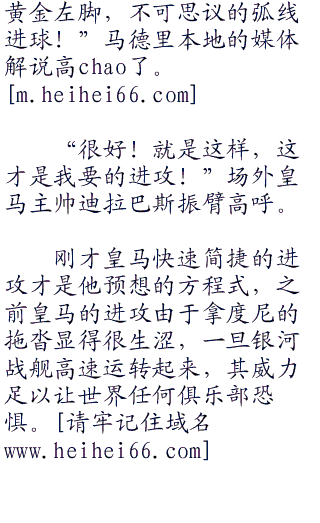 黄金左脚，不可思议的弧线
进球！”马德里本地的媒体
解说高chao了。
[m.heihei66.com]
“很好！就是这样，这
才是我要的进攻！”场外皇
马主帅迪拉巴斯振臂高呼。
刚才皇马快速简捷的进
攻才是他预想的方程式，之
前皇马的进攻由于拿度尼的
拖沓显得很生涩，一旦银河
战舰高速运转起来，其威力
足以让世界任何俱乐部恐
惧。[请牢记住域名
www.heihei66.com]